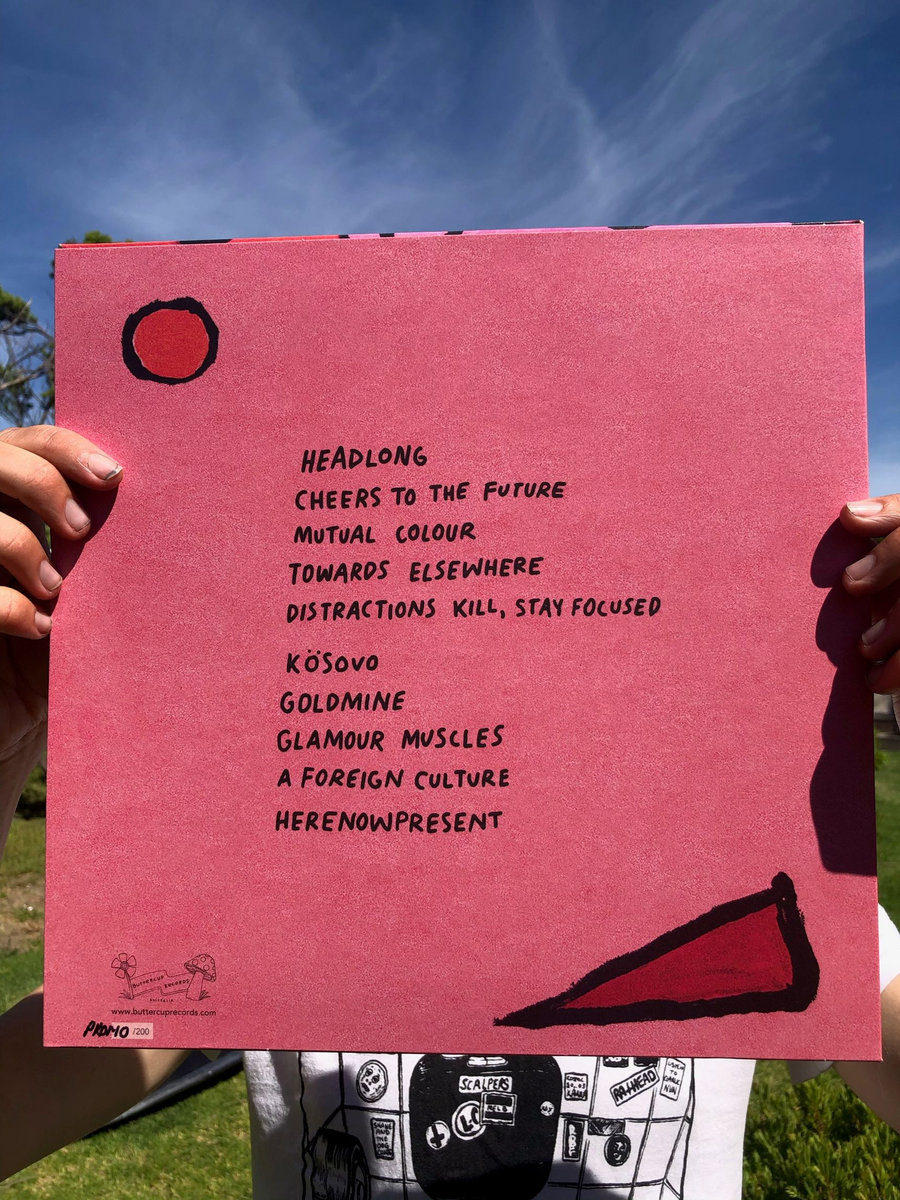 HEADLONG
CHEERS TO THE FUTURE
MUTUAL COLOUR
TOWARDS ELSEWHERE
DISTRACTIONS KILL, STAY FOCUSED
KÖSOVO
GOLDMINE
GLAMOUR MUSCLES
A FOREIGN CULTURE
HERENOWPRESENT
BUTTERCUP RECORDS
AUSTRALIA
www.buttercuprecords.com
PROMO /200
SCALPERS
RATHEAD
SHANE
AND THE
DOG